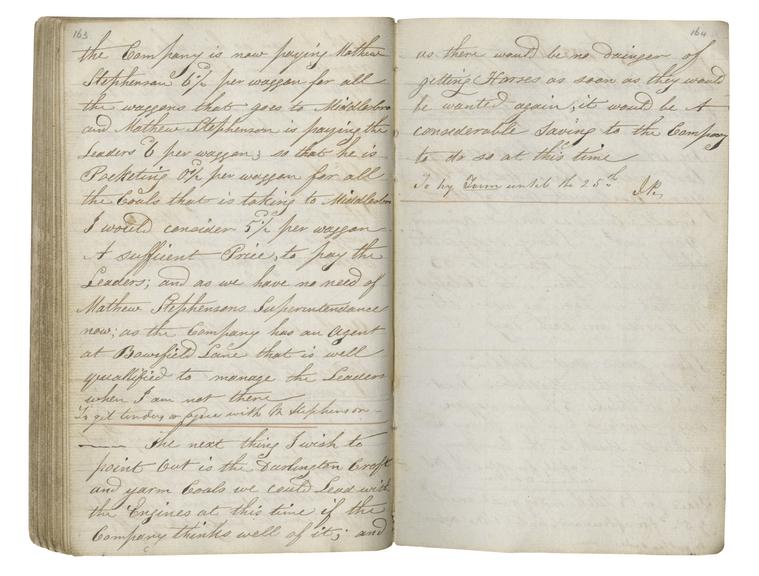 163
the Company is now paying Mathew
Stephenson 6½ᵈ per waggon for all
the waggons that goes to Middlesbro
and Mathew Stephenson is paying the
Leaders 6 per waggon; so that he is
Pocketing 0½ per waggon for all
the Coals that is taking to Middlesbro
I would consider 5½ᵈ per waggon
A sufficient Price, to pay the
Leaders; and as we have no need of
Mathew Stephensons Superintendance
now; as the Company has an agent
at Bowsfield Lane that is well
quallified to manage the Leaders
when I am not there
To get tenders or agree with M Stephenson
—— The next thing I wish to
point out is the Darlington Croft
and yarm Coals we could Lead with
the Engines at this time if the
Company thinks well of it; and
164
as there would be no dainger of
gitting Horses as soon as they would
be wanted again, it would be A
considerable Saving to the Company
to do so at this time
To by until the 25th